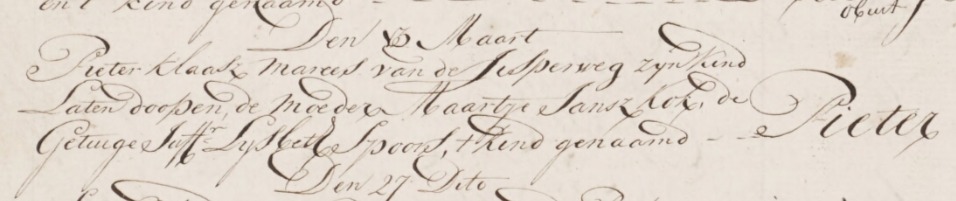 en t kind genaamd
obiit
Den 13 Maart
Pieter Klaasz Marees van de Jisperweg zyn kind
Laten doopen, de moeder Maartje Jansz Kok, de
Getuige Juffr Lysbeth Spoors, t kind genaamd - Pieter
Den 27 Dito